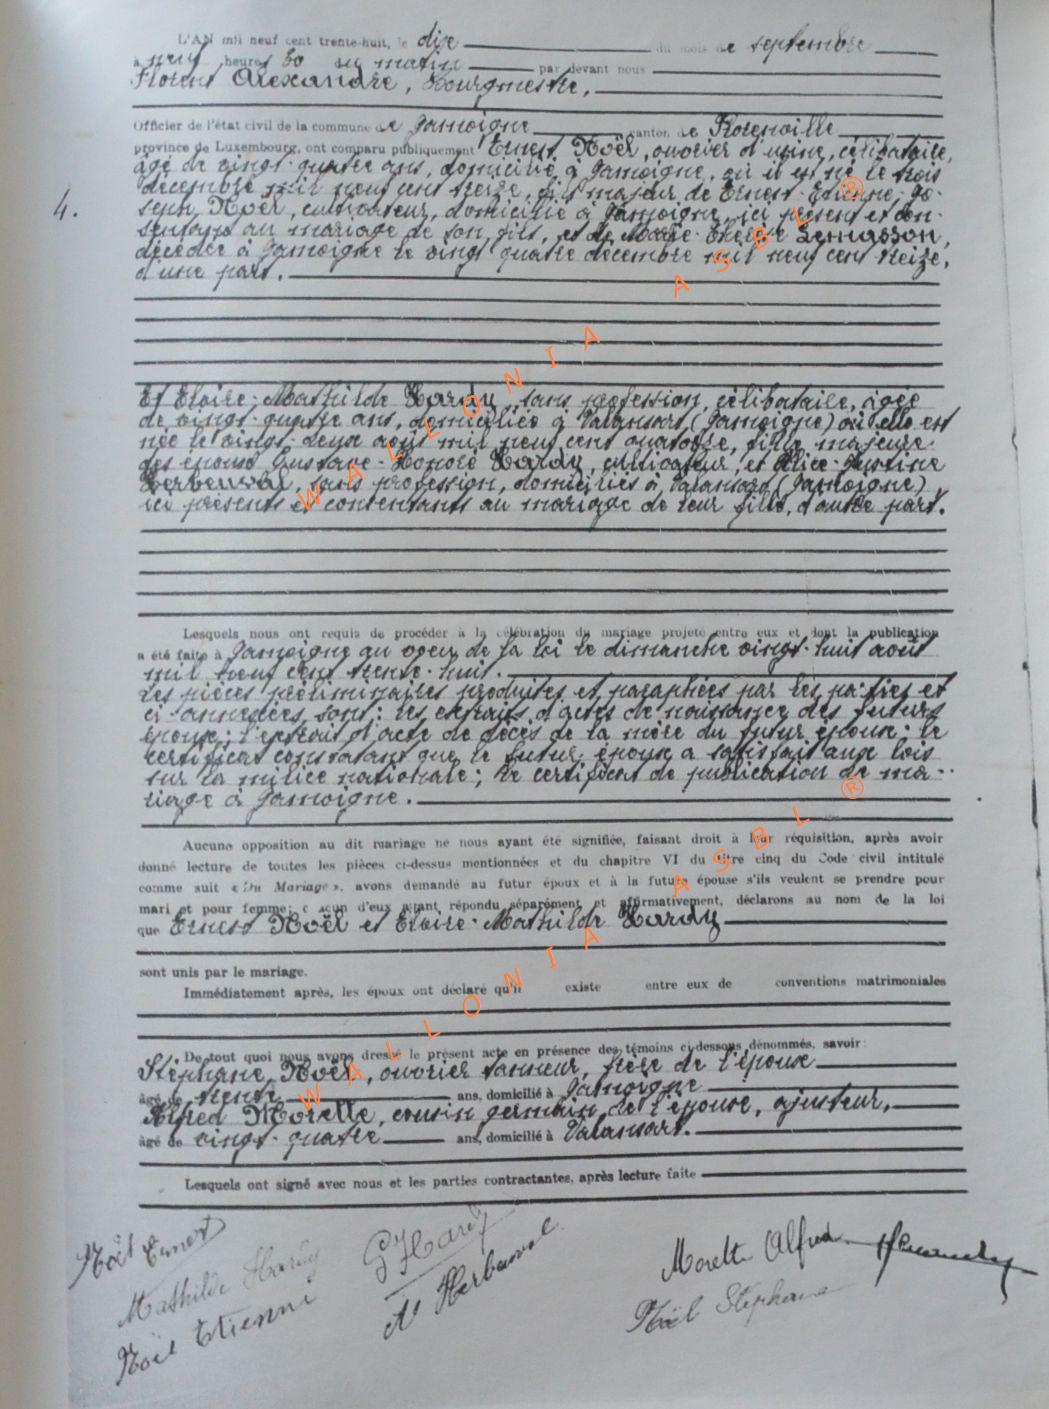 L'AN mil neuf cent trente-huit, le dix du mois de septembre
à neuf heures 30 du matin par devant nous
Florent Alexandre, Bourgmestre,
Officier de l'état civil de la commune de Jamoigne canton de Florenville
province de Luxembourg, ont comparu publiquement Ernest Noël, ouvrier d'usine, célibataire,
âgé de vingt-quatre ans, domicilié à Jamoigne, où il est né le trois
décembre mil neuf cent treize, fils majeur de Ernest-Etienne-Jo-
4.
seph Noël, cultivateur, domicilié à Jamoigne, ici présent et con-
sentant au mariage de son fils, et de Marie- Lemasson,
décédée à Jamoigne le vingt-quatre décembre mil neuf cent treize,
d'une part.
Et Eloïse-Mathilde Hardy, sans profession, célibataire, âgée
de vingt-quatre ans, domiciliée à Valansart (Jamoigne) où elle est
née le vingt-deux août mil neuf cent quatorze, fille majeure
des époux Gustave-Honoré Hardy, cultivateur, et Alice-Justine
Herbeuval, sans profession, domiciliés à Valansart (Jamoigne)
ici présents et consentants au mariage de leur fille, d'autre part.
Lesquels nous ont requis de procéder à la célébration du mariage projeté entre eux et dont la publication
a été faite à Jamoigne au vœu de la loi le dimanche vingt-huit août
mil neuf cent trente-huit.
Les pièces préliminaires produites et paraphées par les parties et
ci-annexées sont: les extraits d'actes de naissance des futurs
époux; l'extrait d'acte de décès de la mère du futur époux; le
certificat constatant que le futur époux a satisfait aux lois
sur la milice nationale; le certificat de publication de ma-
riage à Jamoigne.
Aucune opposition au dit mariage ne nous ayant été signifiée, faisant droit à leur réquisition, après avoir
donné lecture de toutes les pièces ci-dessus mentionnées et du chapitre VI du titre cinq du Code civil intitulé
comme suit « Du Mariage », avons demandé au futur époux et à la future épouse s'ils veulent se prendre pour
mari et pour femme; chacun d'eux ayant répondu séparément et affirmativement, déclarons au nom de la loi
que Ernest Noël et Eloïse-Mathilde Hardy
sont unis par le mariage.
Immédiatement après, les époux ont déclaré qu'il existe entre eux de conventions matrimoniales
De tout quoi nous avons dressé le présent acte en présence des témoins ci-dessous dénommés, savoir:
Stéphane Noël, ouvrier tanneur, frère de l'époux
âgé de trente ans, domicilié à Jamoigne
Alfred Morette, cousin germain de l'épouse, ajusteur,
âgé de vingt-quatre ans, domicilié à Valansart.
Lesquels ont signé avec nous et les parties contractantes, après lecture faite
Noël Ernest
Mathilde Hardy
Noël Etienne
G Hardy
A Herbeuval
Morette Alfred
Noël Stéphane
WALLONIA ASBL ®
WALLONIA ASBL ®